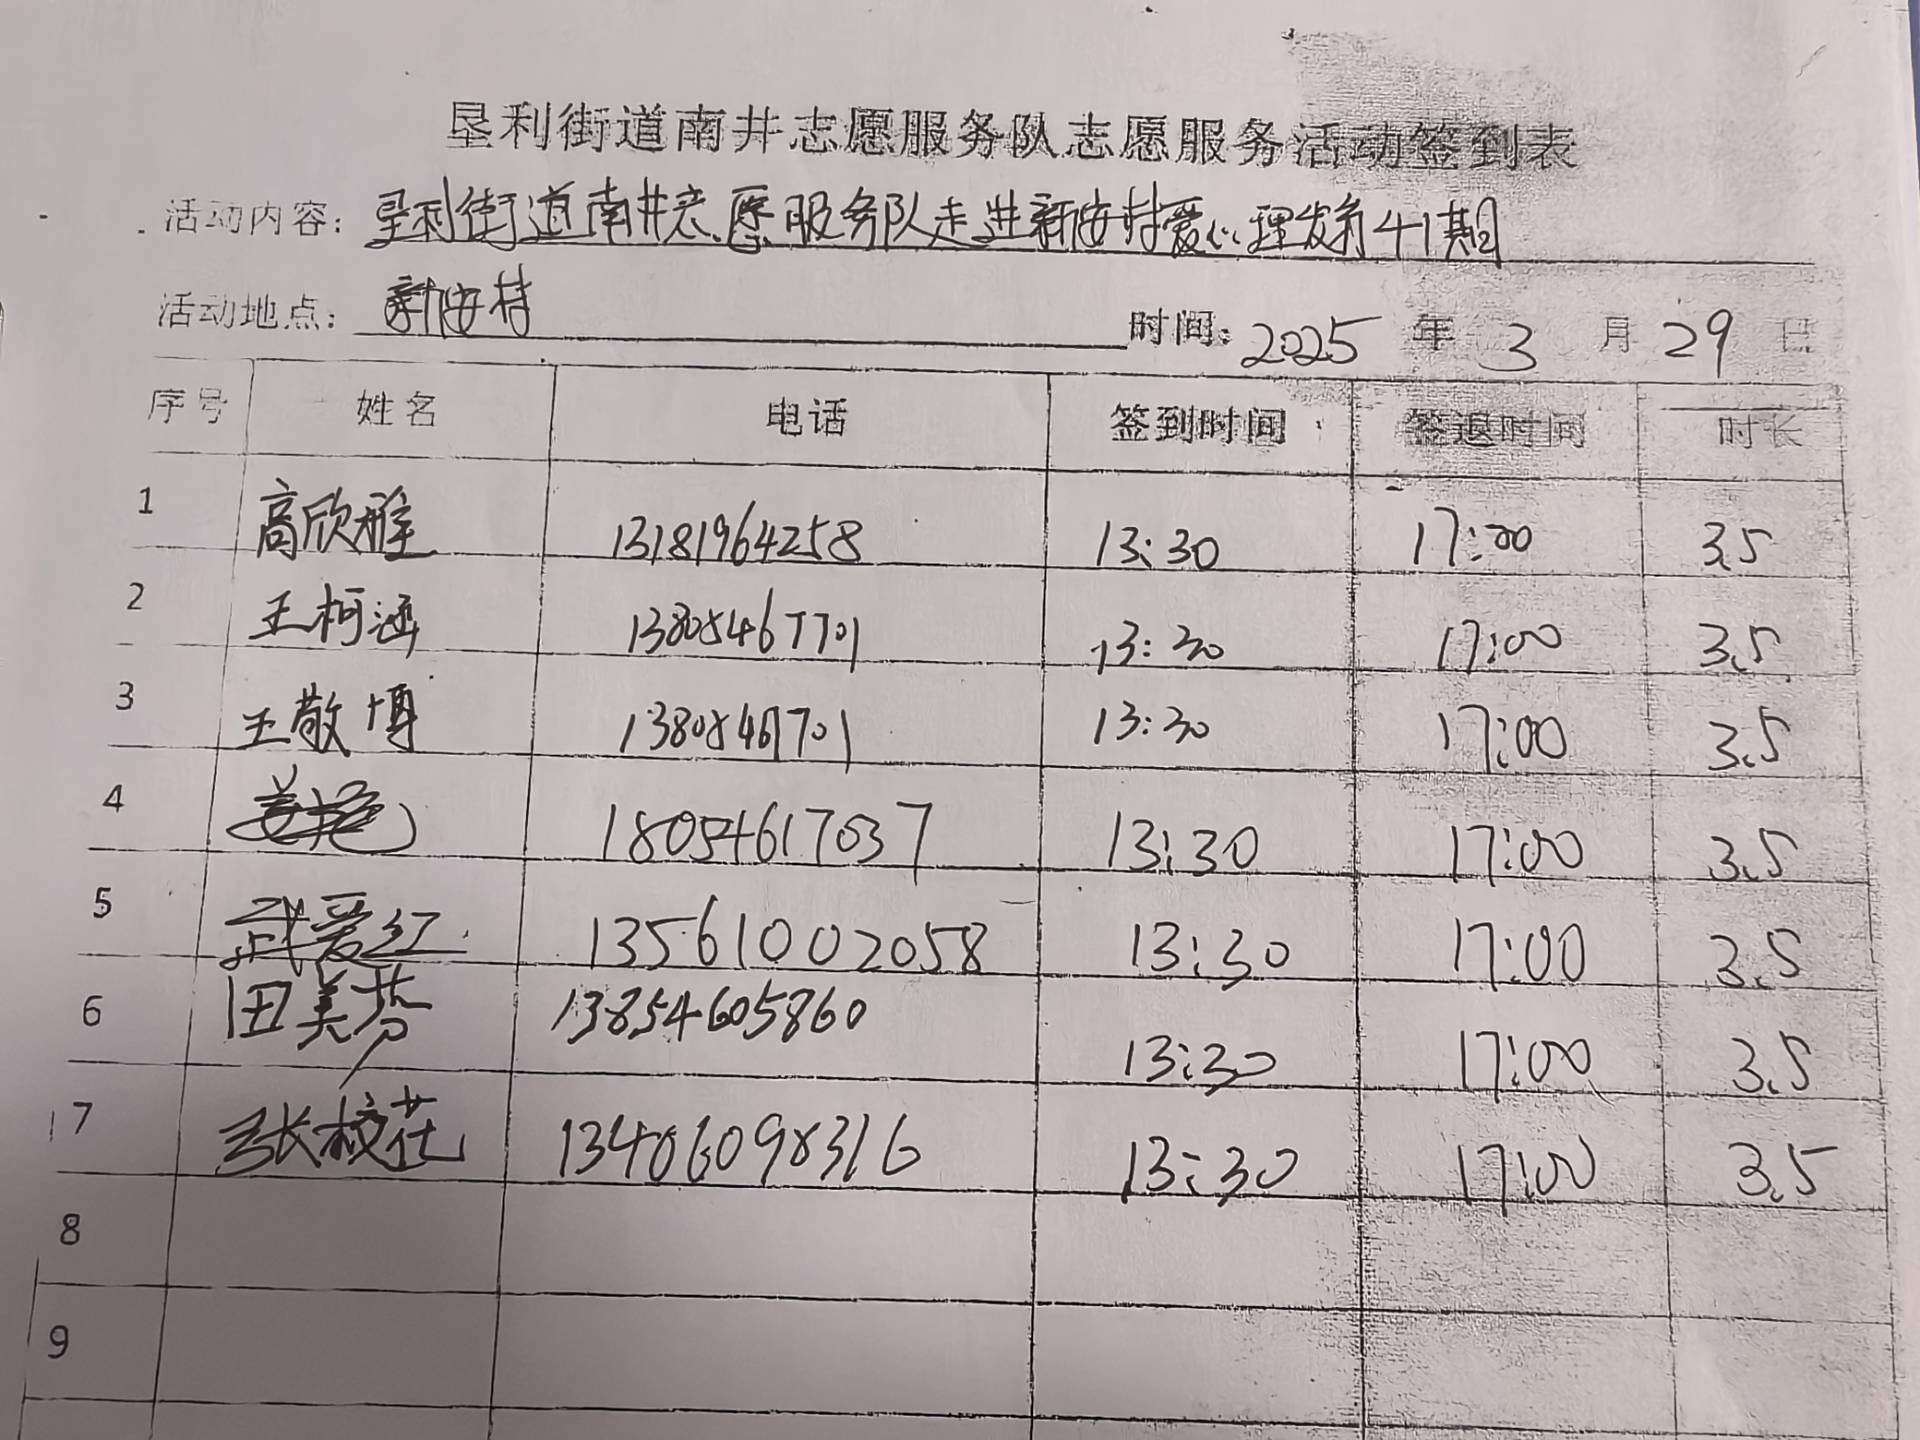 垦利街道南井志愿服务队志愿服务活动签到表
活动内容：垦利街道南井志愿服务队走进新安村爱心理发第41期
活动地点：新安村 时间：2025 年 3 月 29 日
序号 姓名 电话 签到时间 签退时间 时长
1 高欣雅 13181964258 13:30 17:00 3.5
2 王柯涵 13805467701 13:30 17:00 3.5
3 王敬博 13805467701 13:30 17:00 3.5
4 18054617037 13:30 17:00 3.5
5 武爱红 13561002058 13:30 17:00 3.5
6 田美芬 13854605860 13:30 17:00 3.5
7 张校花 13406098316 13:30 17:00 3.5
8
9